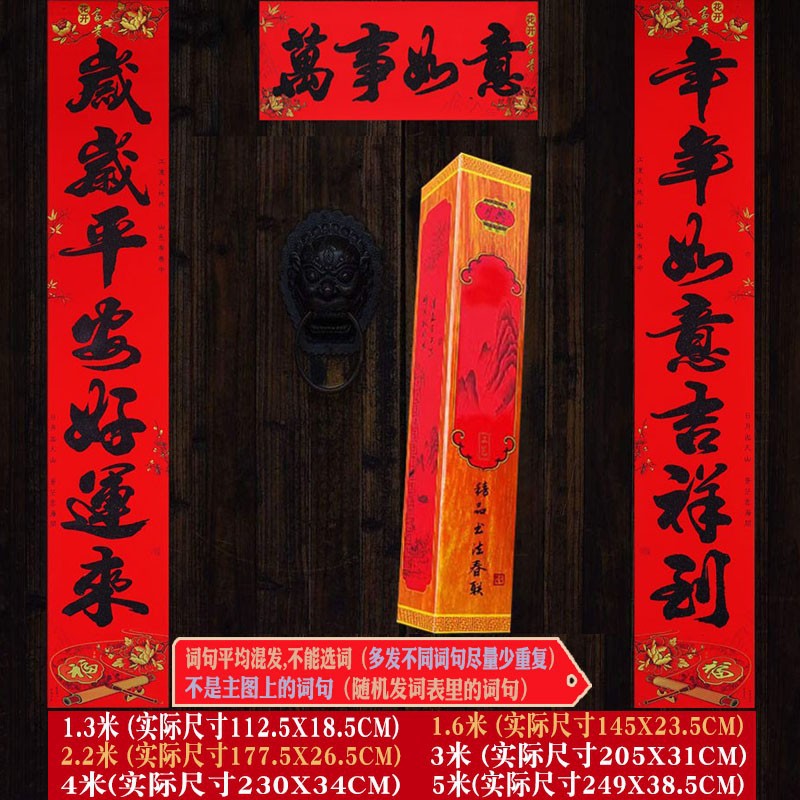 萬事如意
年年如意吉祥到
歲歲平安好運來
花开富贵
花开富贵
福
福
精品书法春联
词句平均混发,不能选词（多发不同词句尽量少重复）
不是主图上的词句（随机发词表里的词句）
1.3米 (实际尺寸112.5X18.5CM)
1.6米 (实际尺寸145X23.5CM)
2.2米 (实际尺寸177.5X26.5CM)
3米 (实际尺寸205X31CM)
4米(实际尺寸230X34CM)
5米(实际尺寸249X38.5CM)